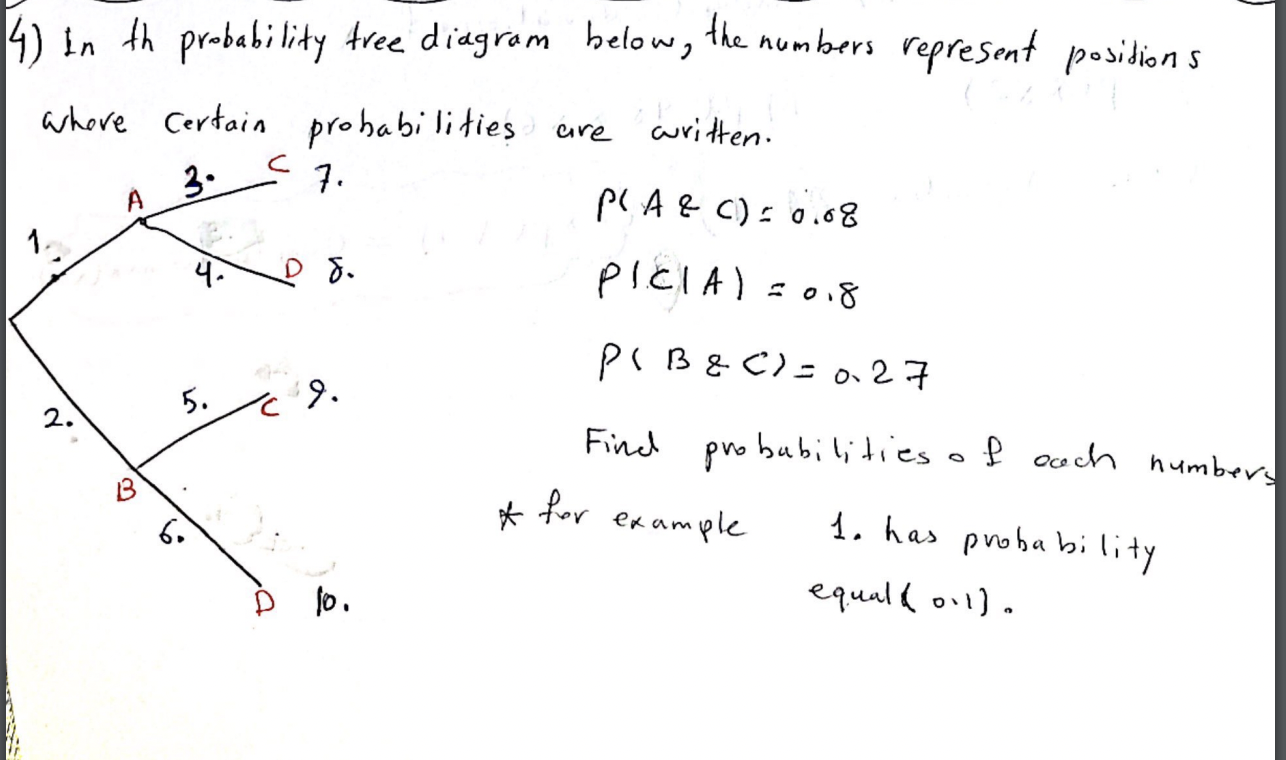 4) In th probability tree diagram below, the numbers represent positions
where certain probabilities are written.
A 3. C 7.
1.
4. D 8.
2.
5. C 9.
B
6.
D 10.
P( A & C) = 0.08
P(C|A) = 0.8
P( B & C) = 0.27
Find probabilities of each numbers
* for example 1. has probability
equal( 0.1).